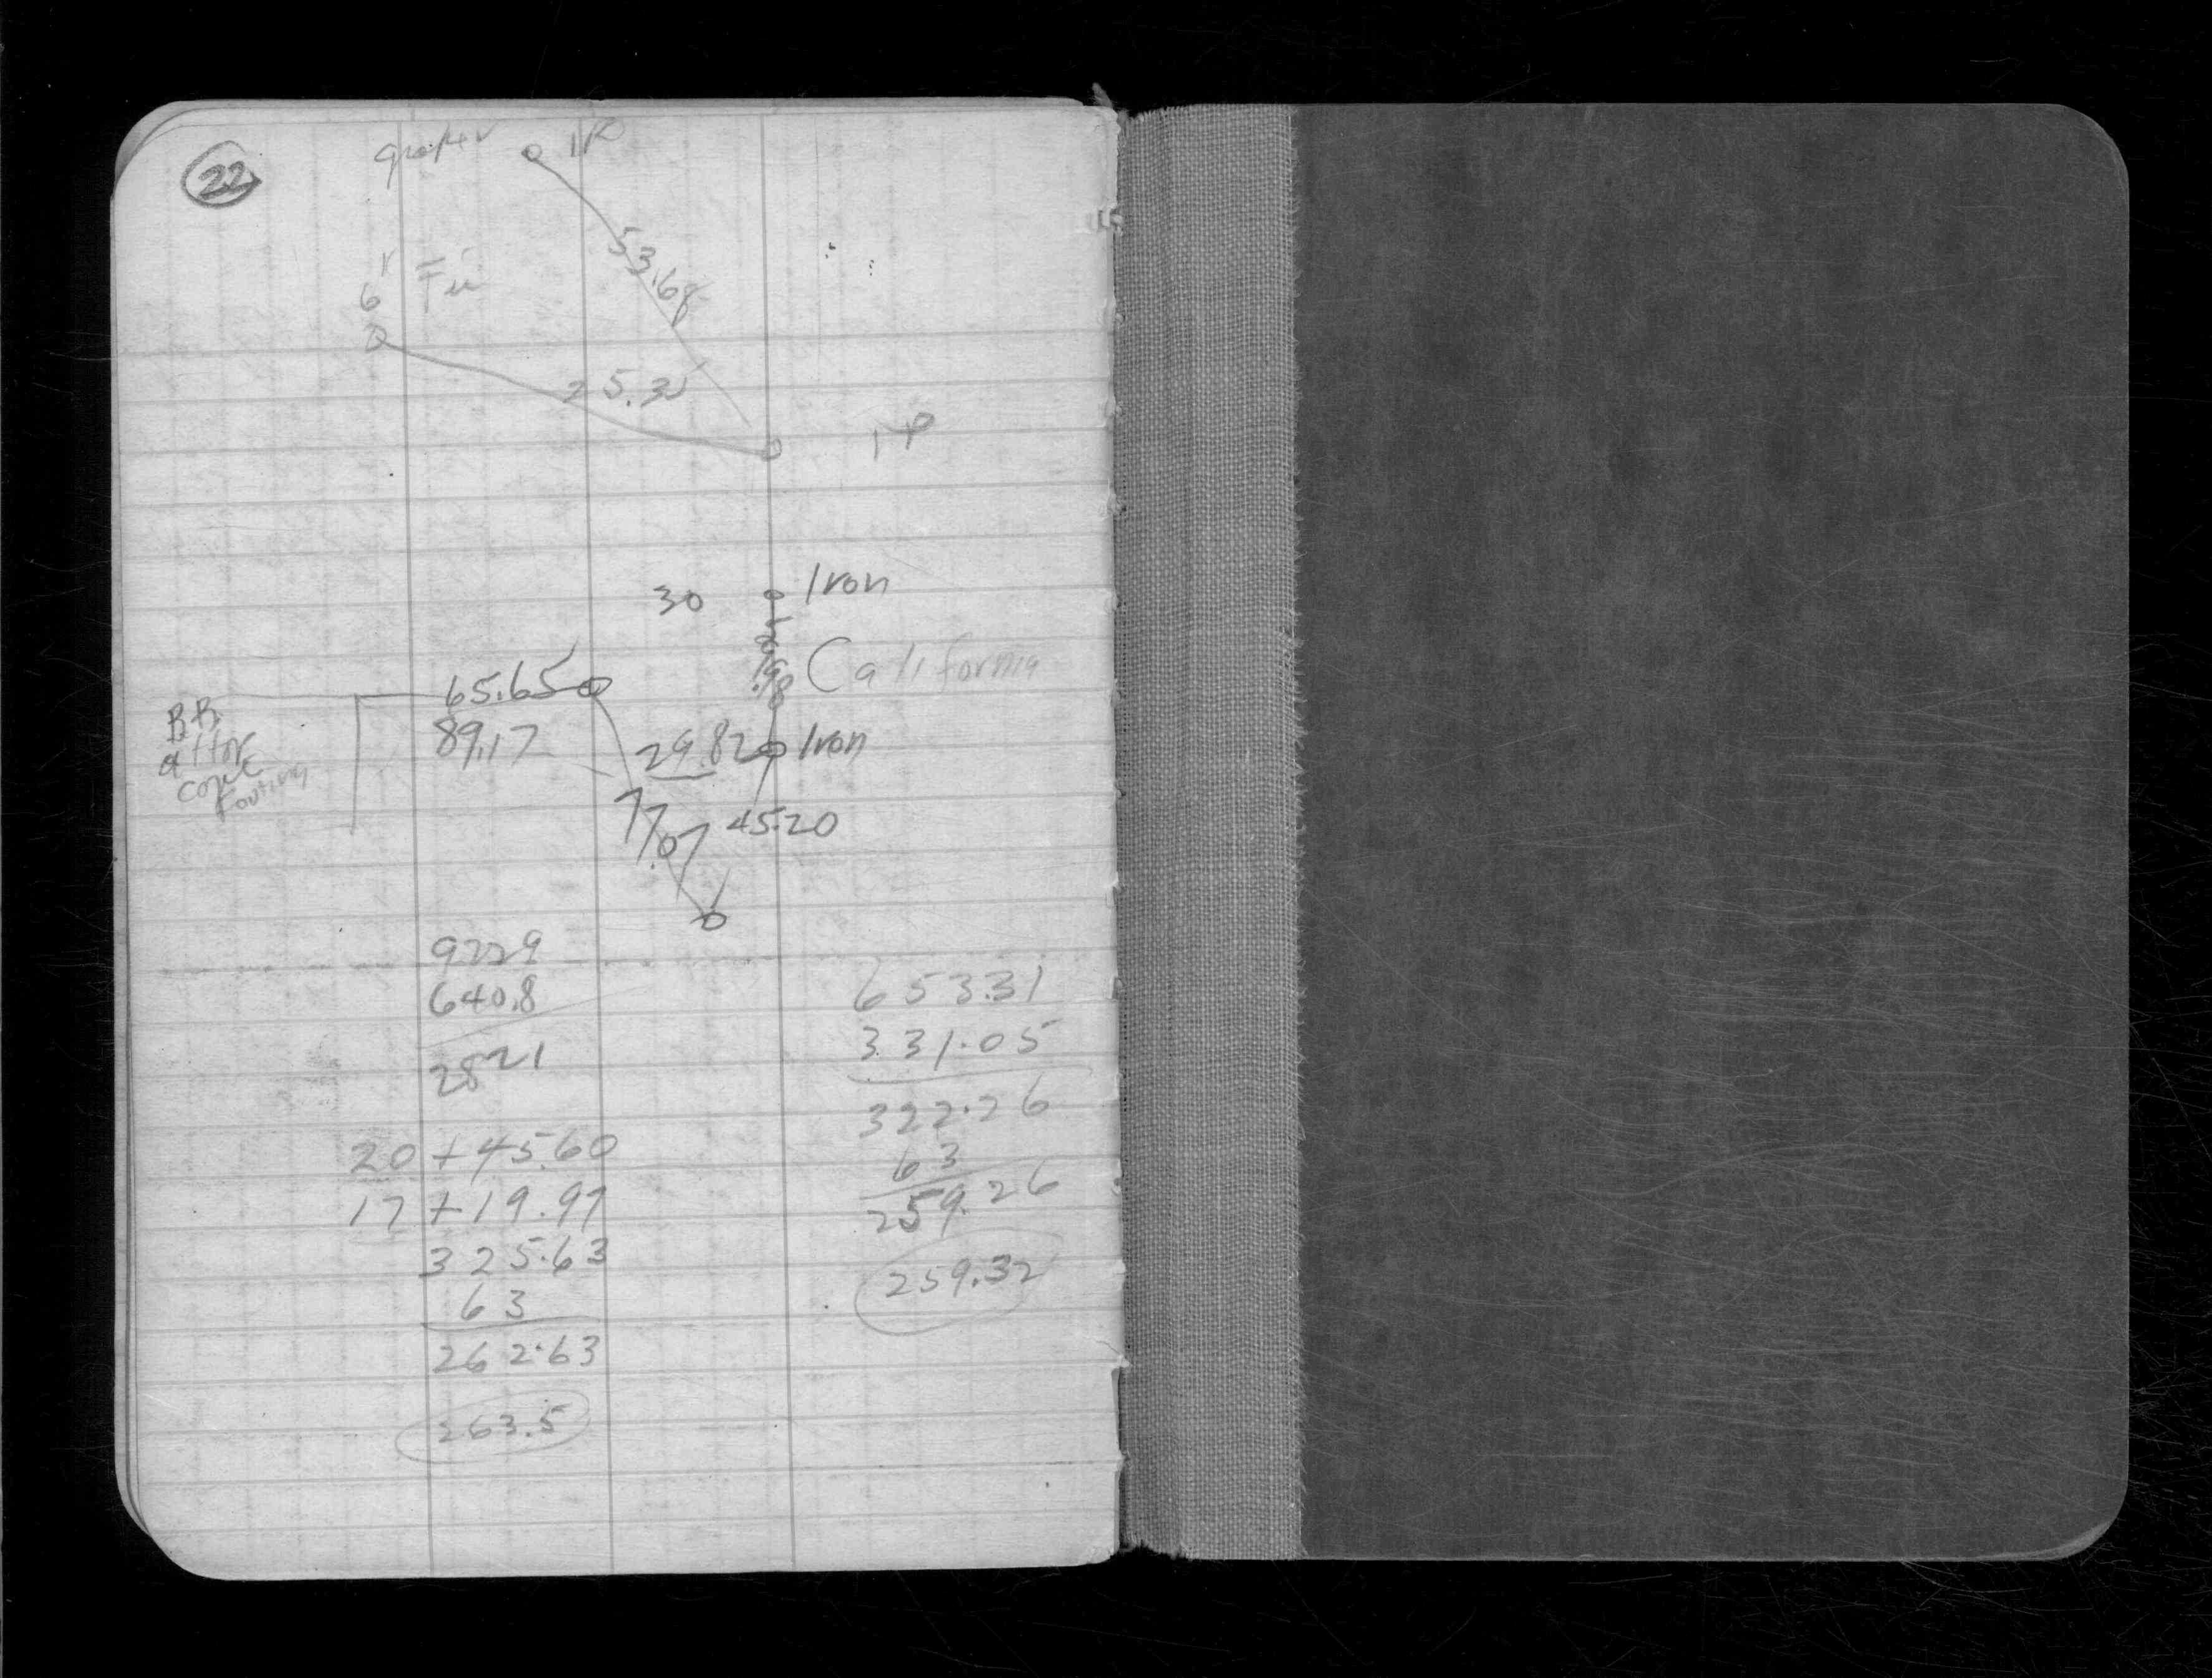 22
IP
53.68
6"
25.32
IP
30 Iron
29.98
California
65.65
89.17
29.82 Iron
BB
att or
conc
Footing
77.07
45.20
9229
640.8
2821
20 + 45.60
17 + 19.97
325.63
63
262.63
263.5
653.31
331.05
322.26
63
259.26
259.32